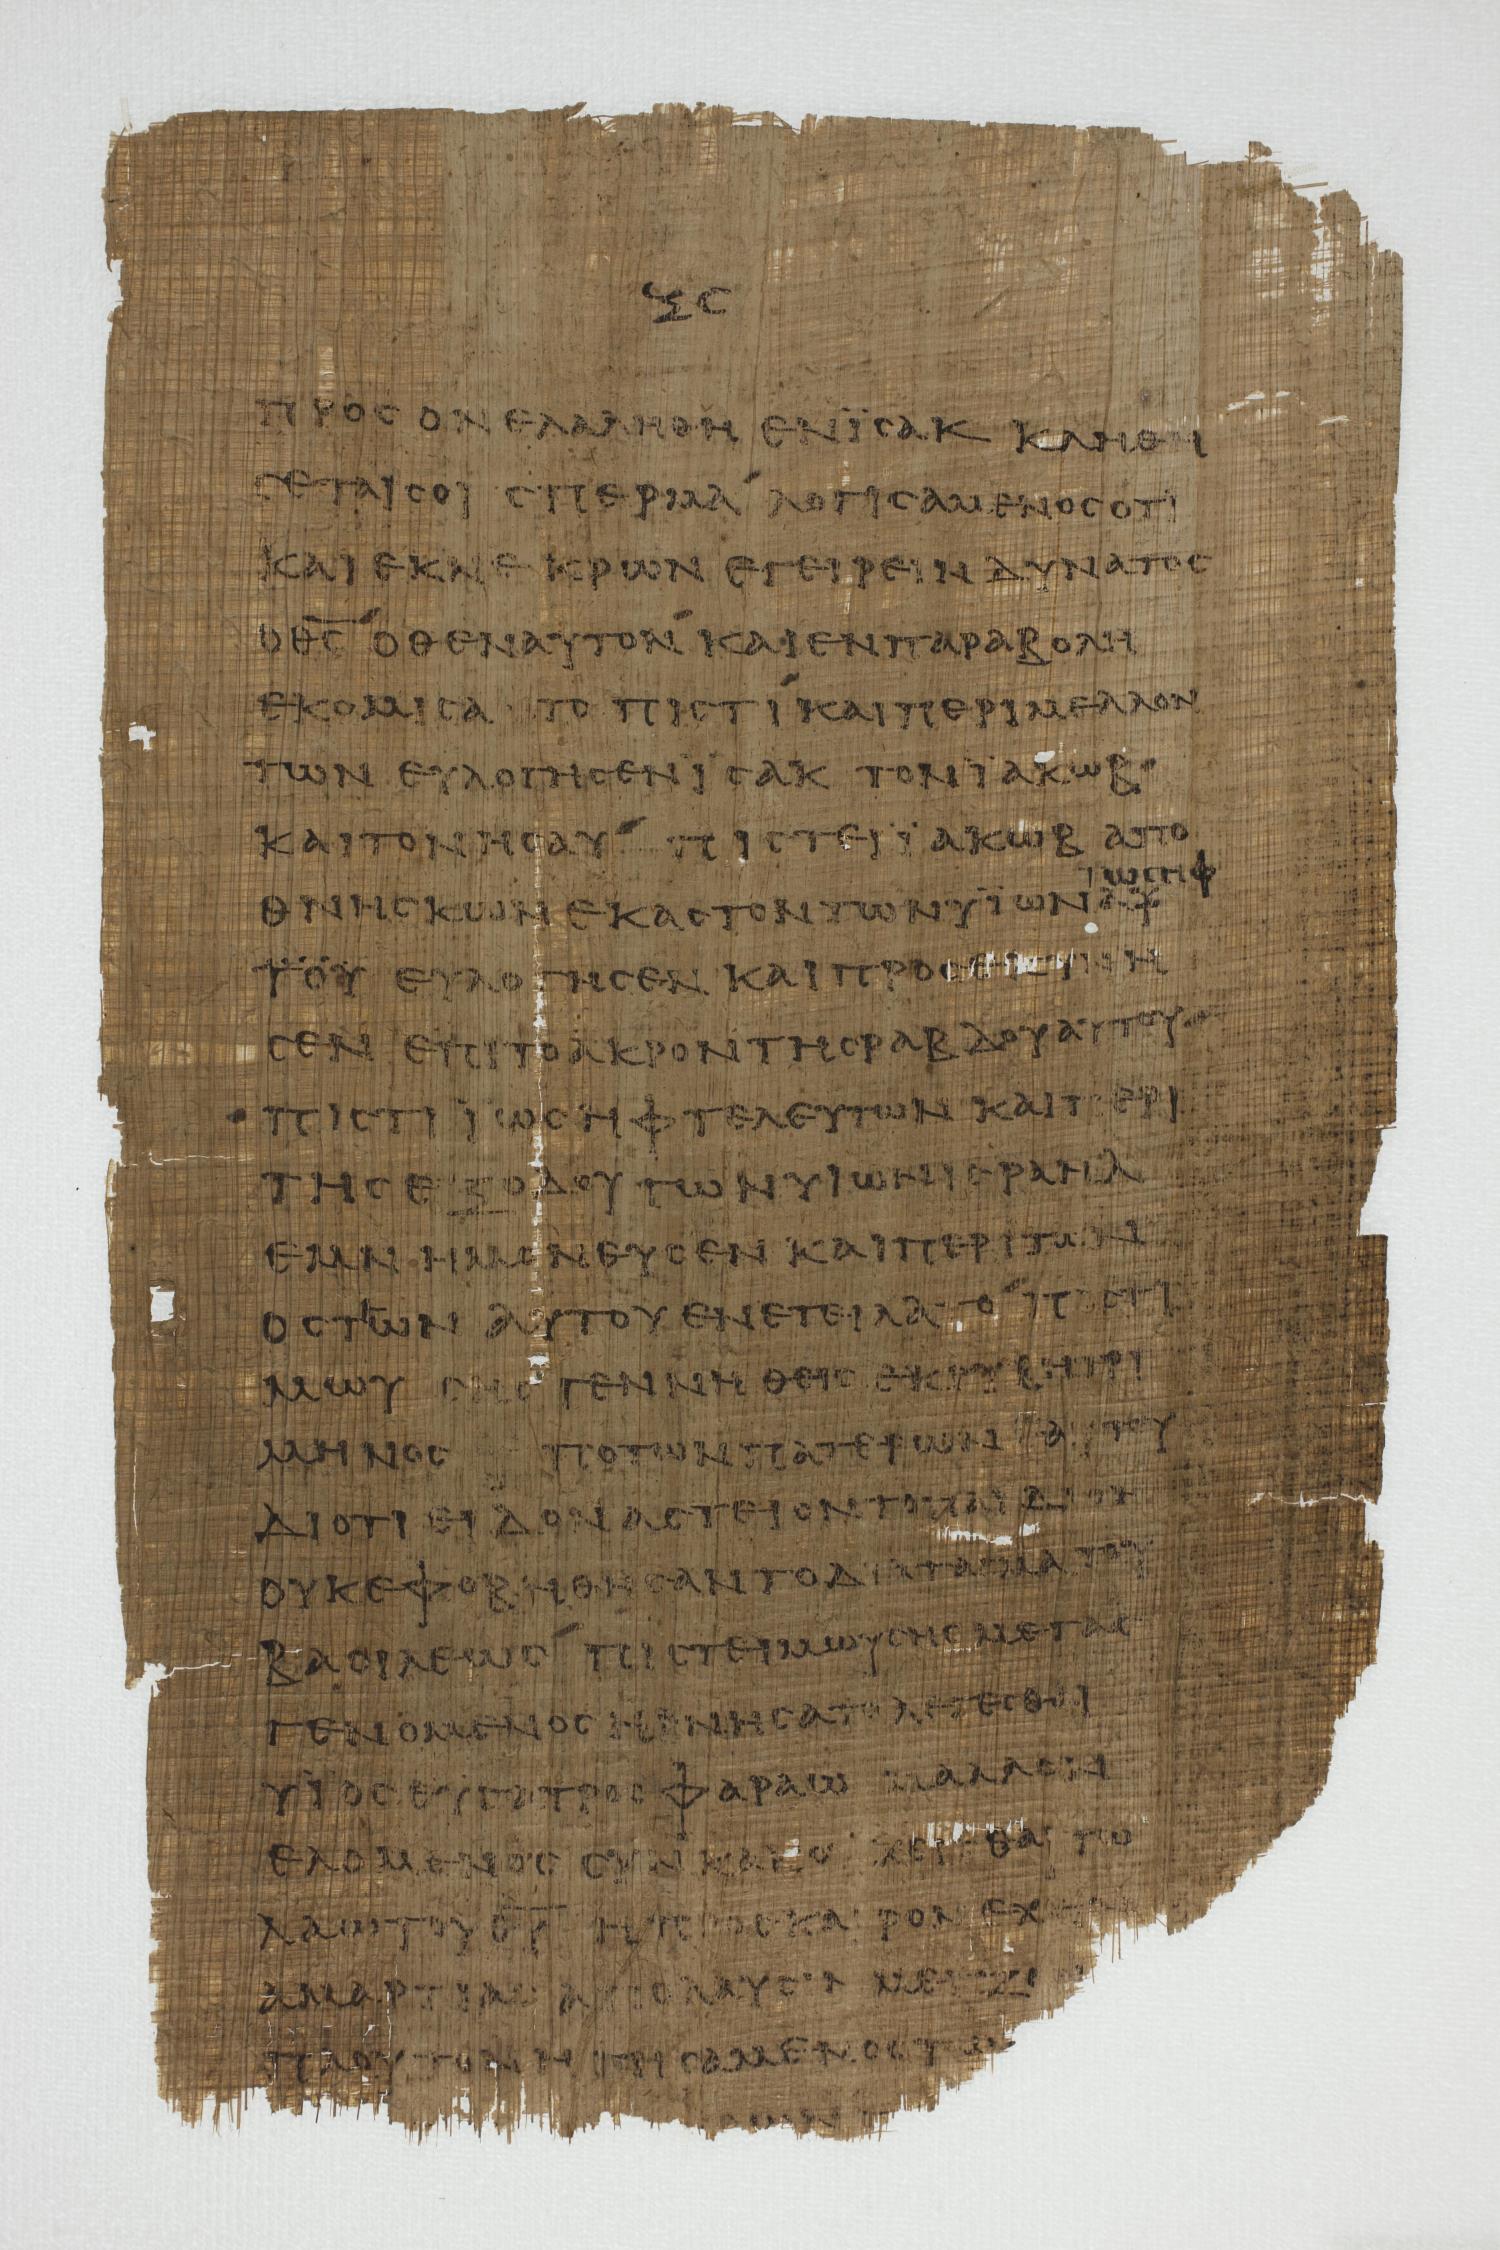 ξϛ
προσ ον ελαληθη εν ϊσακ κληθη
σεταισοι σπερμα᾽ λογισαμενοσοτι
και εκνεκρων εγειρειν δυνατοσ
οθ̅σ̅᾽ οθεναυτον᾽ καιενπαραβολη
εκομισατο πιστι᾽ καιπεριμελλον
των ευλογησενϊσακ τονϊακωβ·
καιτονησαυ᾽ πιστειϊακωβ απο
θνησκωνεκαστοντωνυϊων ϊωσηφ
ευλογησεν καιπροσεκυνη
σεν επιτοακροντησραβδουαυτου
πιστι ϊωσηφ τελευτων καιπερι
τησεξοδου τωνυιωνισραηλ
εμνημονευσεν καιπεριτων
οστεων αυτου ενετειλατο᾽ πιστι
μωυσησ γεννηθεισ εκρυβητρι
μηνοσ ϋποτωνπατερων αυτου
διοτι ειδοναστειοντοπαιδιον
ουκεφοβηθησαντοδιαταγματου
βασιλεωσ᾽ πιστειμωυσησμεγασ
γενομενοσηρνησατολεγεσθαι
υϊοσθυγατροσφαραω μαλλον
ελομενοσ συνκακουχεισθαι τω
λαωτουθ̅υ̅ ηπροσκαιρον εχειν
αμαρτιασ απολαυσιν μειζο
πλουτονηγησαμενοστων